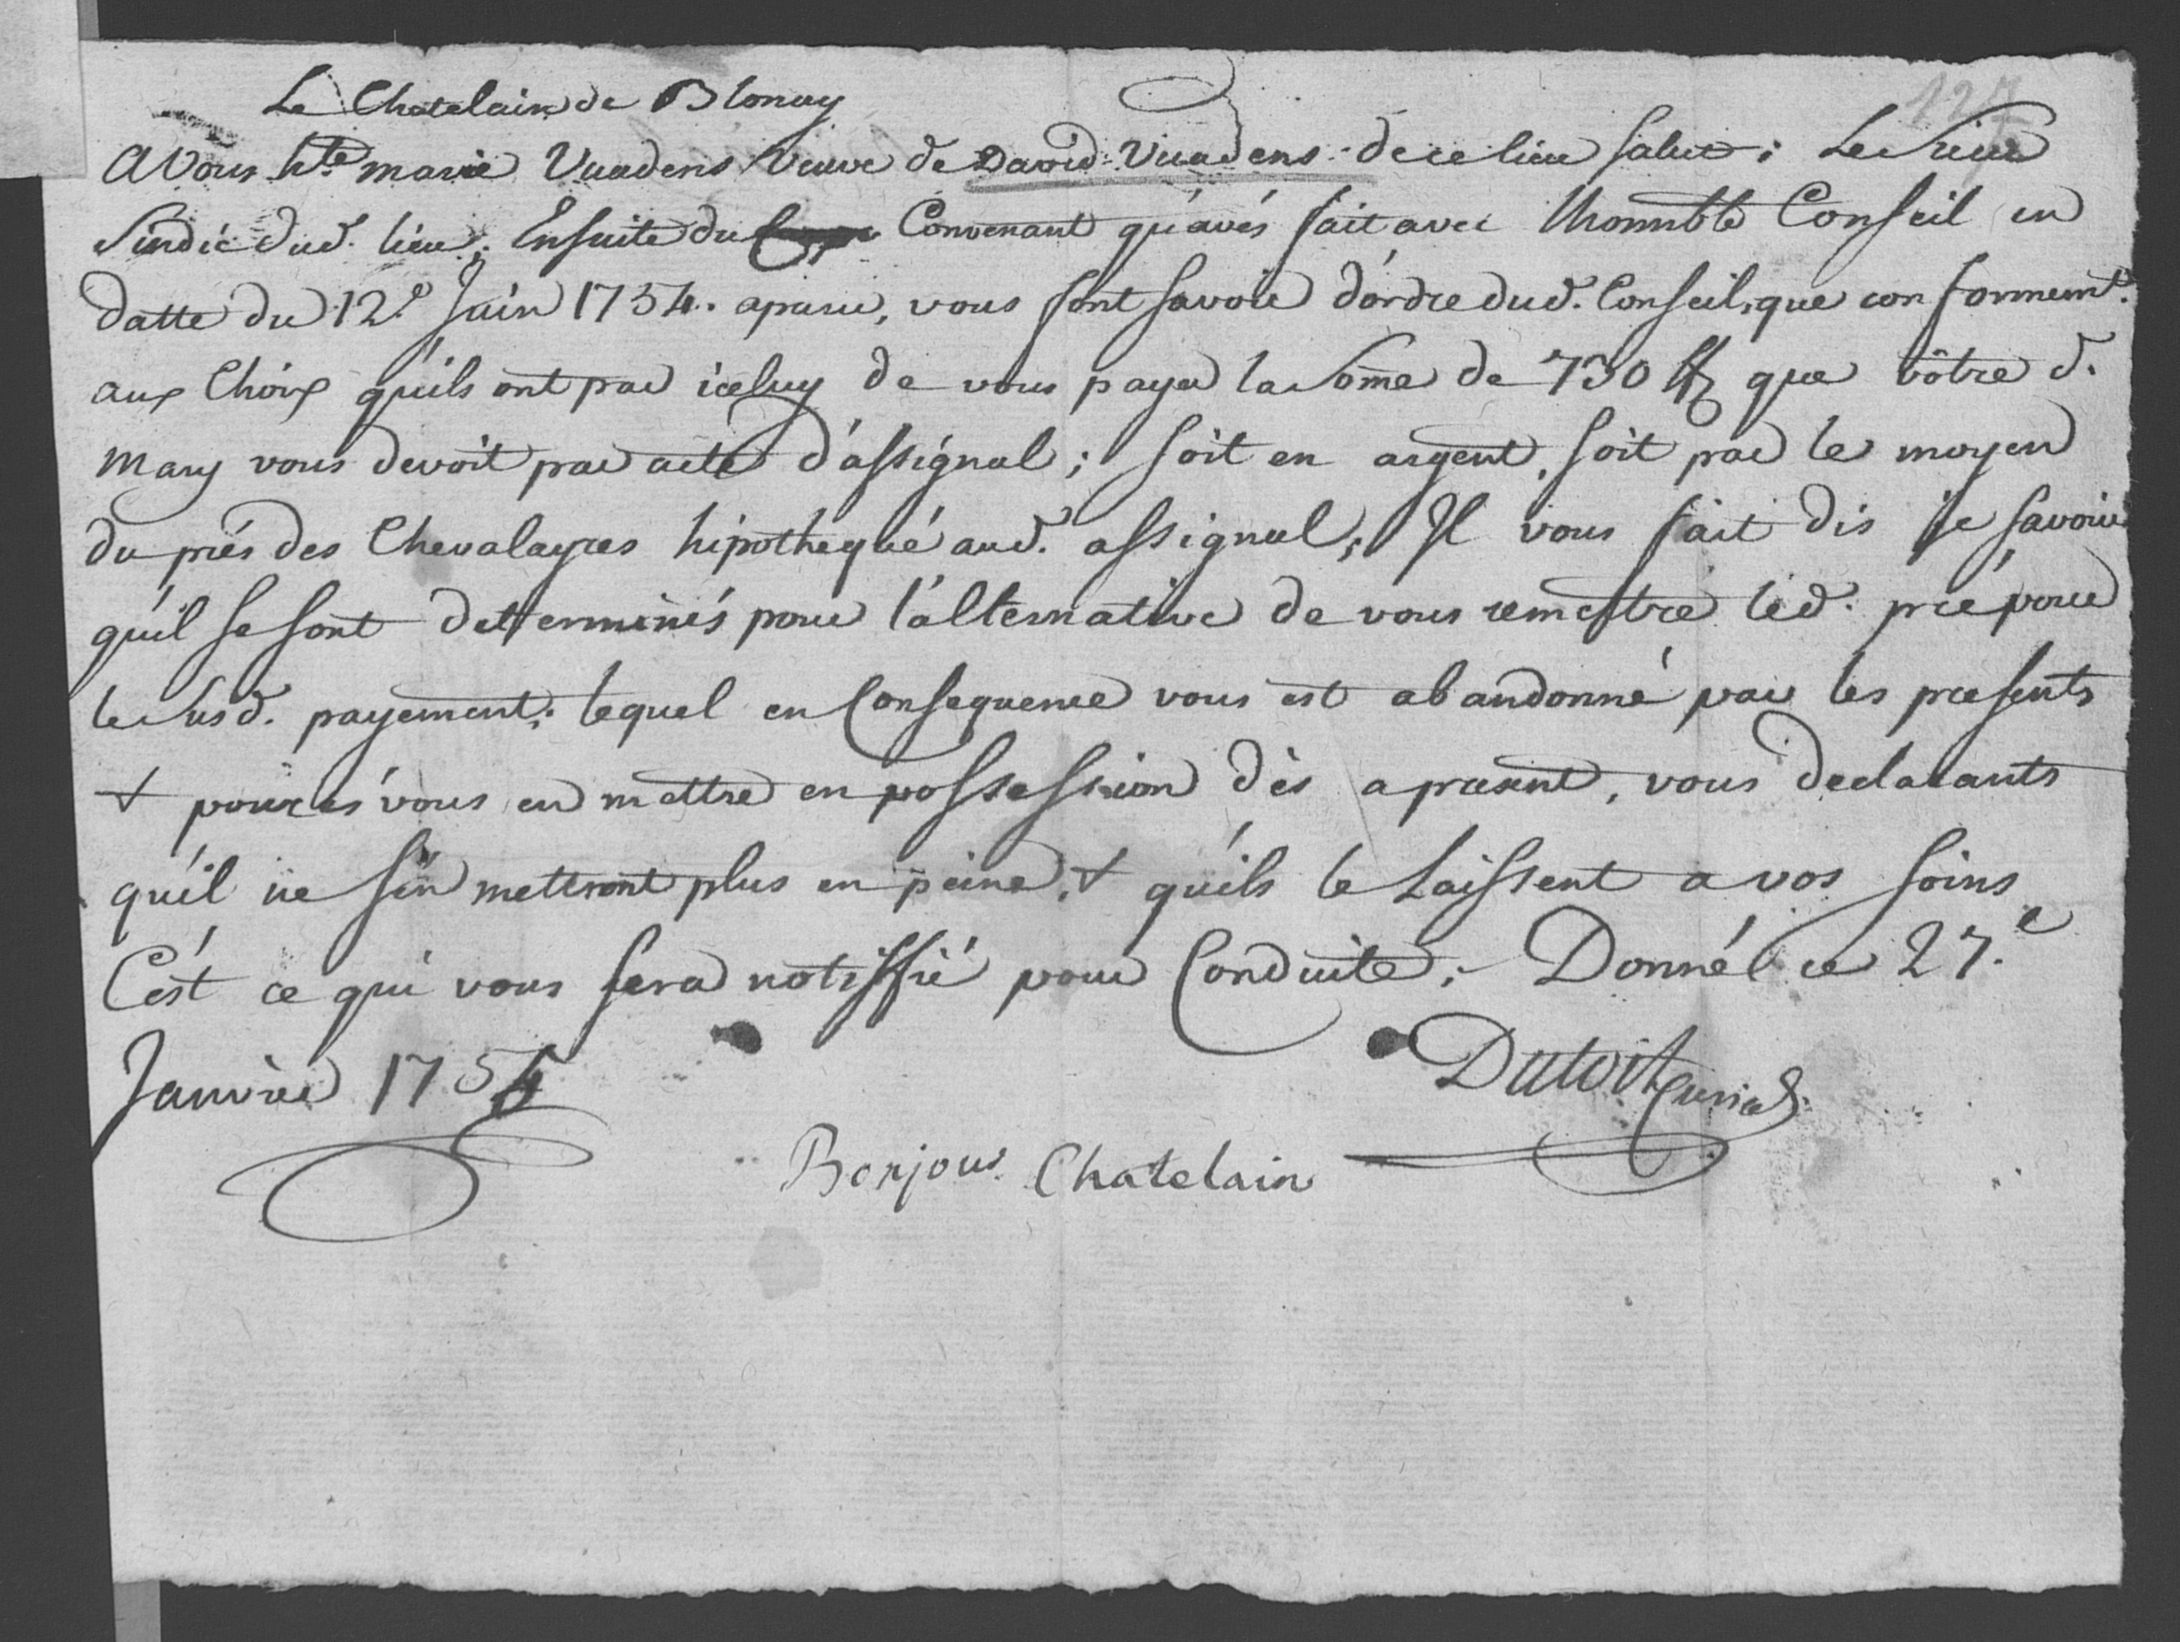 127
Le Chatelain de Blonay
A Vous hte. marie Vuadens veuve de David Vuadens de ce lieu salut; Le Sieur
Sindic dud. lieu; Ensuite du Convenant qu'avés fait avec lhonnble Conseil en
datte du 12e Juin 1754. aparu, vous font savoir d'ordre dud. Conseil, que conformemt.
aux Choix qu'ils ont par iceluy de vous payer la Some de 730 ff que vôtre d.
mary vous devoit par acte d'assignal; soit en argent, soit par le moyen
du prés des Chevalayres hipothequé aud. assignal; Il vous fait dis je savoir
qu'il se sont determinés pour l'alternative de vous remettre led. pré pour
le susd. payement; lequel en Consequence vous est abandonné par les presents
& pourrés vous en mettre en possession dès a present, vous declarants
qu'il ne s'en mettront plus en peine, & qu'ils le Laissent a vos soins
C'est ce qui vous sera notiffié pour Conduite; Donné ce 27.e
Janvier 1755
Dutoit Curial
Bonjour Chatelain